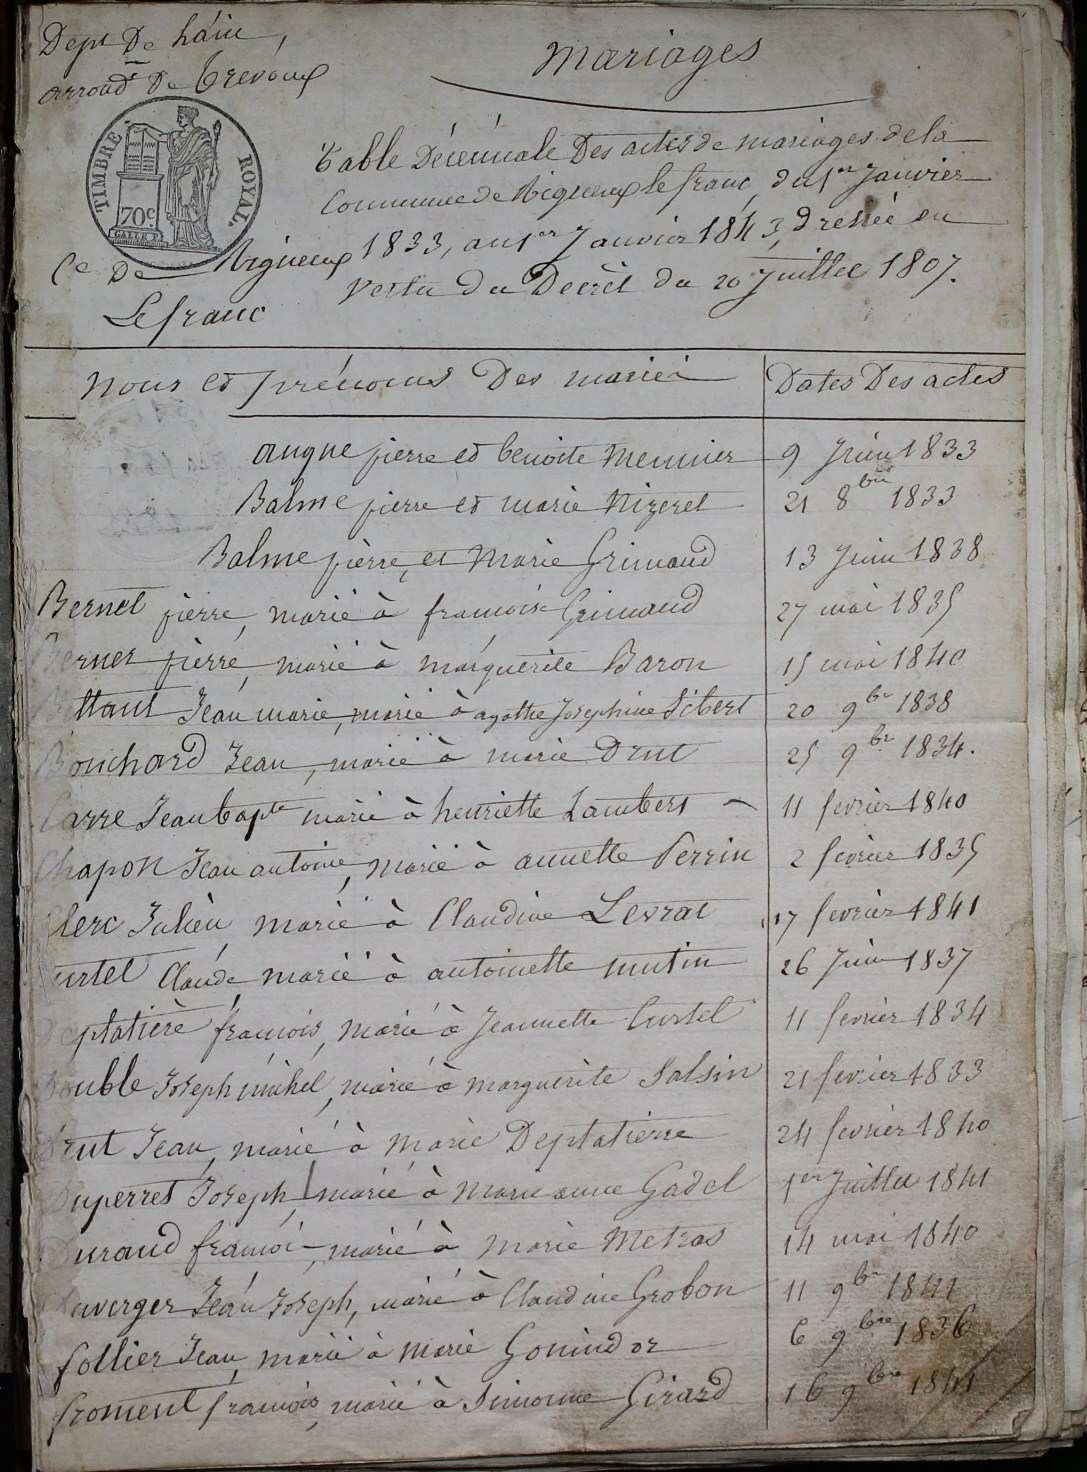 Dept De L'ain,
arrondt De Trevoux
Mariages
TIMBRE ROYAL
70c
Table Décennale Des actes de mariages de la
Commune de Rigneux le franc, du 1er Janvier
1833, au 1er Janvier 1843, dressée en
vertu du Décrèt du 20 Juillet 1807.
Ce De Rigneux
Le franc
Noms et prénoms Des mariés Dates Des actes
augne pierre et benoite Meunier 9 Juin 1833
Balme pierre et marie Nizeret 21 8bre 1833
Balme pierre, et Marie Grimaud 13 Juin 1838
Bernet pierre, marié à francoise Grimaud 27 mai 1835
Berner pierre, marié à marguerite Baron 15 mai 1840
Jean marie, marié à agathe Josephine Sibert 20 9bre 1838
Bouchard Jean, marié à marie Drut 25 9bre 1834.
Carre Jean bapte marié à henriette Lambert 11 fevrier 1840
Chapon Jean antoine, marié à annette Perrin 2 fevrier 1835
Clerc Julien marié à Claudine Levrat 17 fevrier 1841
Curtel Claude marié à antoinette mutin 26 Juin 1837
Deptatière francois, marié à Jeannette Curtel 11 fevrier 1834
Double Joseph michel, marié à marguerite Salsin 21 fevrier 1833
Drut Jean, marié à Marie Deptatierre 24 fevrier 1840
Duperret Joseph, marié à Marie anne Gadel 1er Juillet 1841
Durand francois, marié à Marie Metras 14 mai 1840
Jean Joseph, marié à Claudine Grobon 11 9bre 1841
follier Jean, marié à Marie Gonindor 6 9bre 1836
froment francois, marié à Simonne Girard 16 9bre 1841